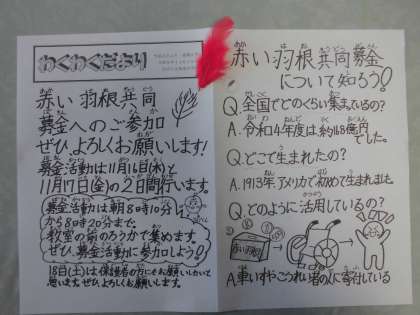 わくわくだより
赤い羽根共同
募金へのご参加
ぜひ、よろしくお願いします!
募金活動は11月16日(木)と
11月17日(金)の2日間行います。
募金活動は朝8時10分
から8時20分まで、
教室の前のろうかで集めます。
ぜひ、募金活動に参加しよう!
18日(土)は保護者の方にもお願いしたいと
思います。ぜひよろしくお願いします。
赤い羽根共同募金
について知ろう!
Q.全国でどのくらい集まているの?
A.令和4年度は、約168億円
でした。
Q.どこで生まれたの?
A.1913年、アメリカで初めて生まれました。
Q.どのように活用しているの?
A.車いすやこうれい者の人に寄付している